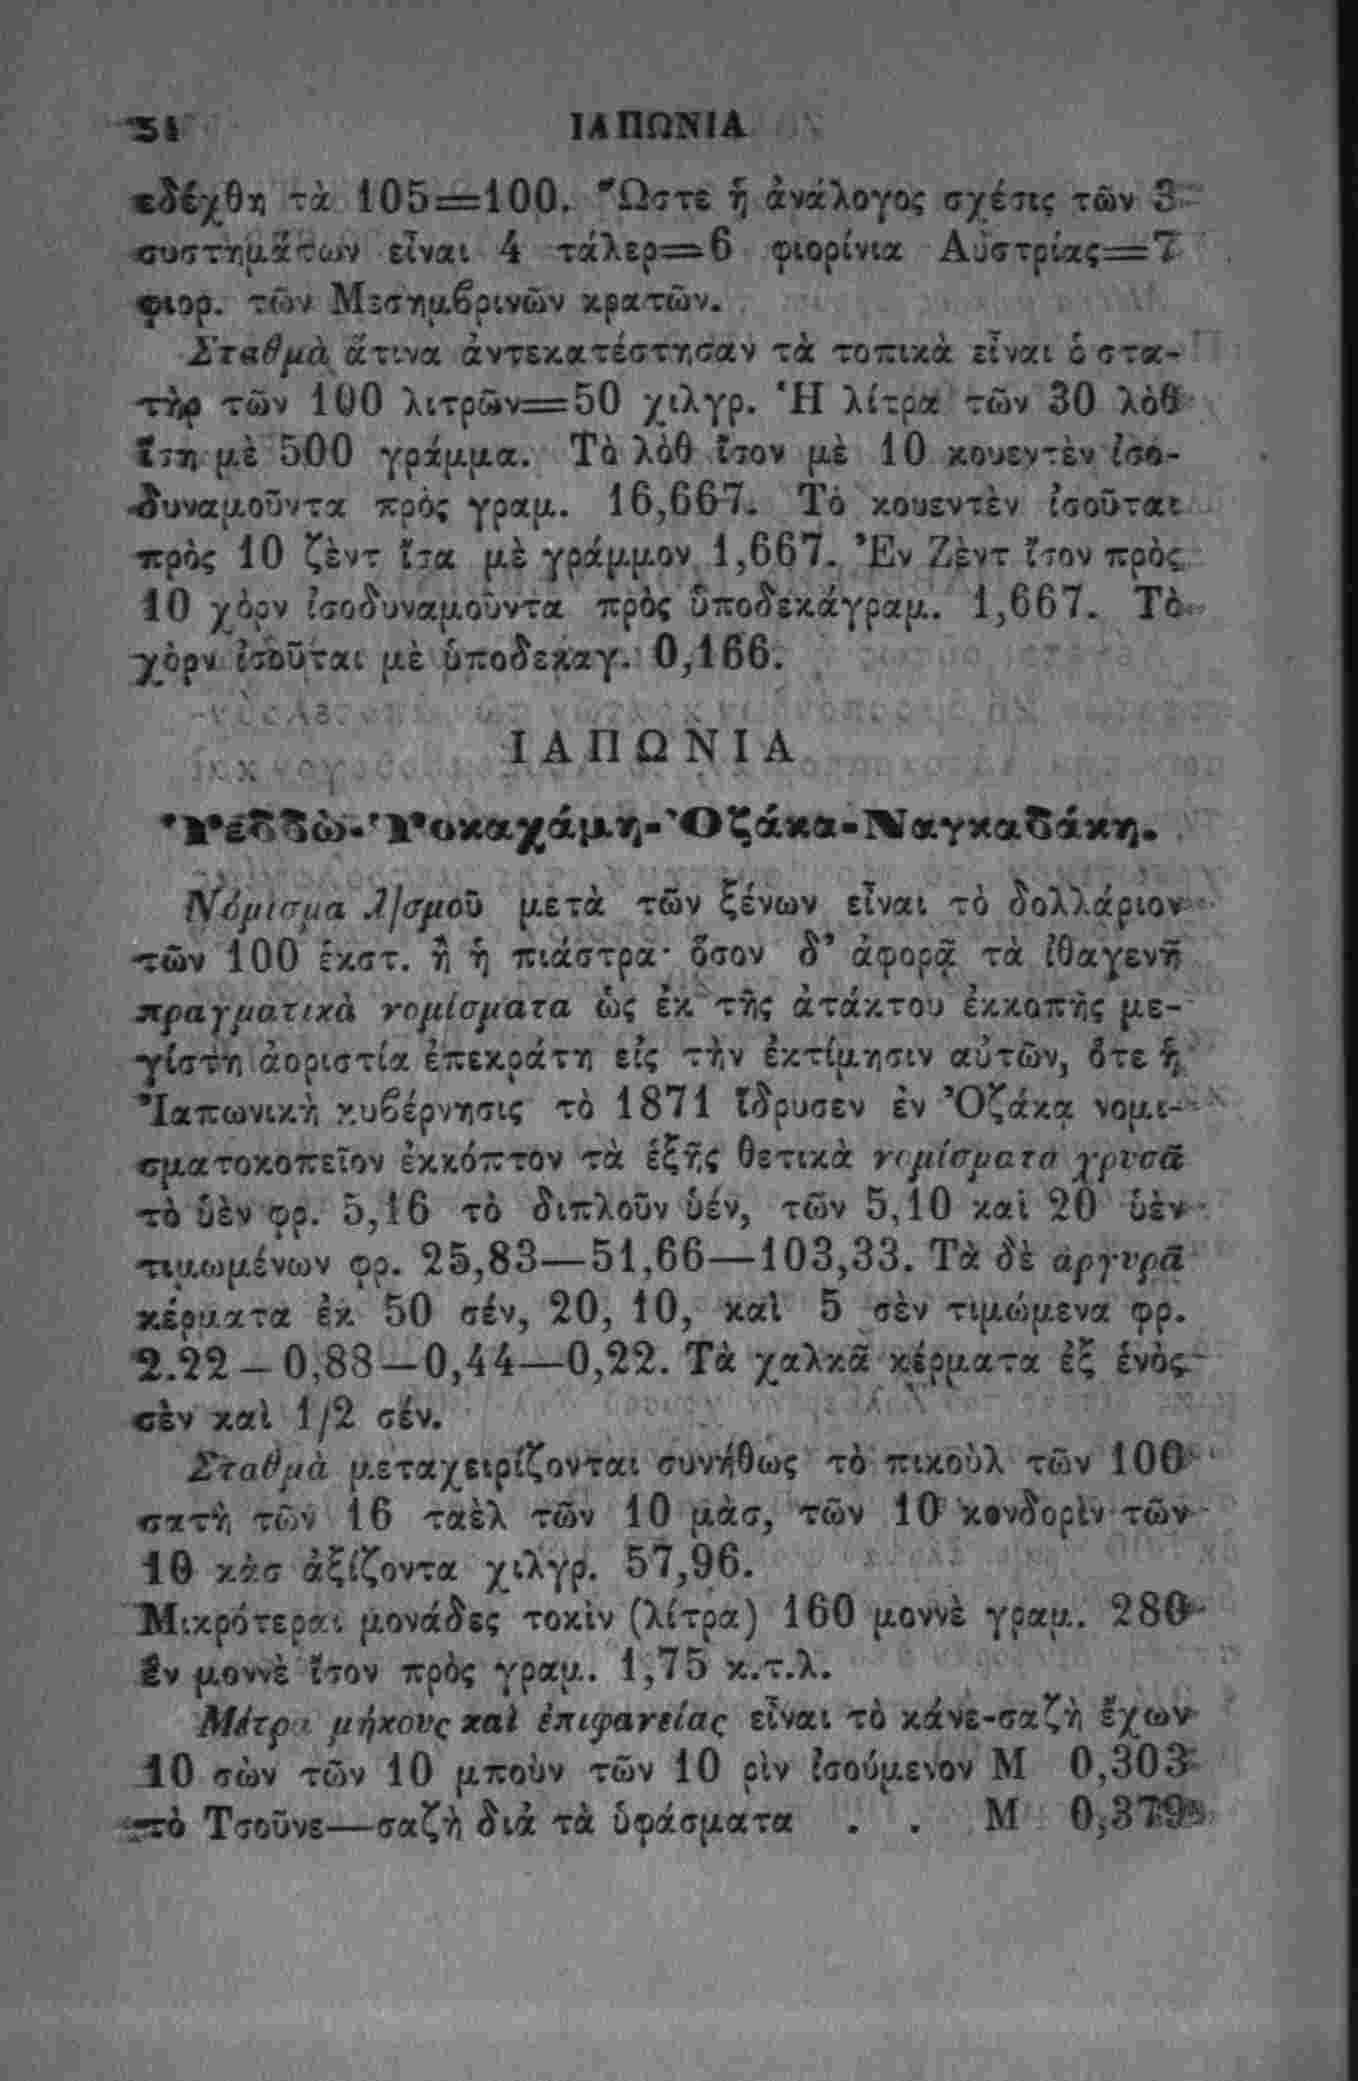 54 ΙΑΠΩΝΙΑ
εδέχθη τὰ 105=100. Ὥστε ἡ ἀνάλογος σχέσις τῶν 3
συστημάτων εἶναι 4 τάλερ=6 φιορίνια Αὐστρίας=7
φιορ. τῶν Μεσημβρινῶν κρατῶν.
Σταθμὰ ἅτινα ἀντεκατέστησαν τὰ τοπικὰ εἶναι ὁ στα-
τὴρ τῶν 100 λιτρῶν=50 χιλγρ. Ἡ λίτρα τῶν 30 λὸθ
ἴση μὲ 500 γράμμα. Τὸ λὸθ ἴσον μὲ 10 κουεντὲν ἰσο-
δυναμοῦντα πρὸς γραμ. 16,667. Τὸ κουεντὲν ἰσοῦται
πρὸς 10 ζὲντ ἴσα μὲ γράμμον 1,667. Ἓν Ζὲντ ἴσον πρὸς
10 χὸρν ἰσοδυναμοῦντα πρὸς ὑποδεκάγραμ. 1,667. Τὸ
χὸρν ἰσοῦται μὲ ὑποδεκαγ. 0,166.
ΙΑΠΩΝΙΑ
Ὑεδδὼ-Ὑοκαχάμη-Ὀζάκα-Ναγκαδάκη.
Νόμισμα λ)σμοῦ μετὰ τῶν ξένων εἶναι τὸ δολλάριον
τῶν 100 ἑκστ. ἢ ἡ πιάστρα· ὅσον δ' ἀφορᾷ τὰ ἰθαγενῆ
πραγματικὰ νομίσματα ὡς ἐκ τῆς ἀτάκτου ἐκκοπῆς με-
γίστη ἀοριστία ἐπεκράτη εἰς τὴν ἐκτίμησιν αὐτῶν, ὅτε ἡ
Ἰαπωνικὴ κυβέρνησις τὸ 1871 ἵδρυσεν ἐν Ὀζάκᾳ νομι-
σματοκοπεῖον ἐκκόπτον τὰ ἑξῆς θετικὰ νομίσματα χρυσᾶ
τὸ ὑὲν φρ. 5,16 τὸ διπλοῦν ὑέν, τῶν 5,10 καὶ 20 ὑὲν
τιμωμένων φρ. 25,83—51,66—103,33. Τὰ δὲ ἀργυρᾶ
κέρματα ἐκ 50 σέν, 20, 10, καὶ 5 σὲν τιμώμενα φρ.
2.22 — 0,88—0,44—0,22. Τὰ χαλκᾶ κέρματα ἐξ ἑνὸς
σὲν καὶ 1/2 σέν.
Σταθμὰ μεταχειρίζονται συνήθως τὸ πικοὺλ τῶν 100
σατὴ τῶν 16 ταὲλ τῶν 10 μὰσ, τῶν 10 κονδορὶν τῶν
10 κὰσ ἀξίζοντα χιλγρ. 57,96.
Μικρότεραι μονάδες τοκὶν (λίτρα) 160 μοννὲ γραμ. 280
ἓν μοννὲ ἴσον πρὸς γραμ. 1,75 κ.τ.λ.
Μέτρα μήκους καὶ ἐπιφανείας εἶναι τὸ κάνε-σαζὴ ἔχων
10 σὼν τῶν 10 μποὺν τῶν 10 ρὶν ἰσούμενον Μ 0,303
τὸ Τσοῦνε—σαζὴ διὰ τὰ ὑφάσματα . . Μ 0,379